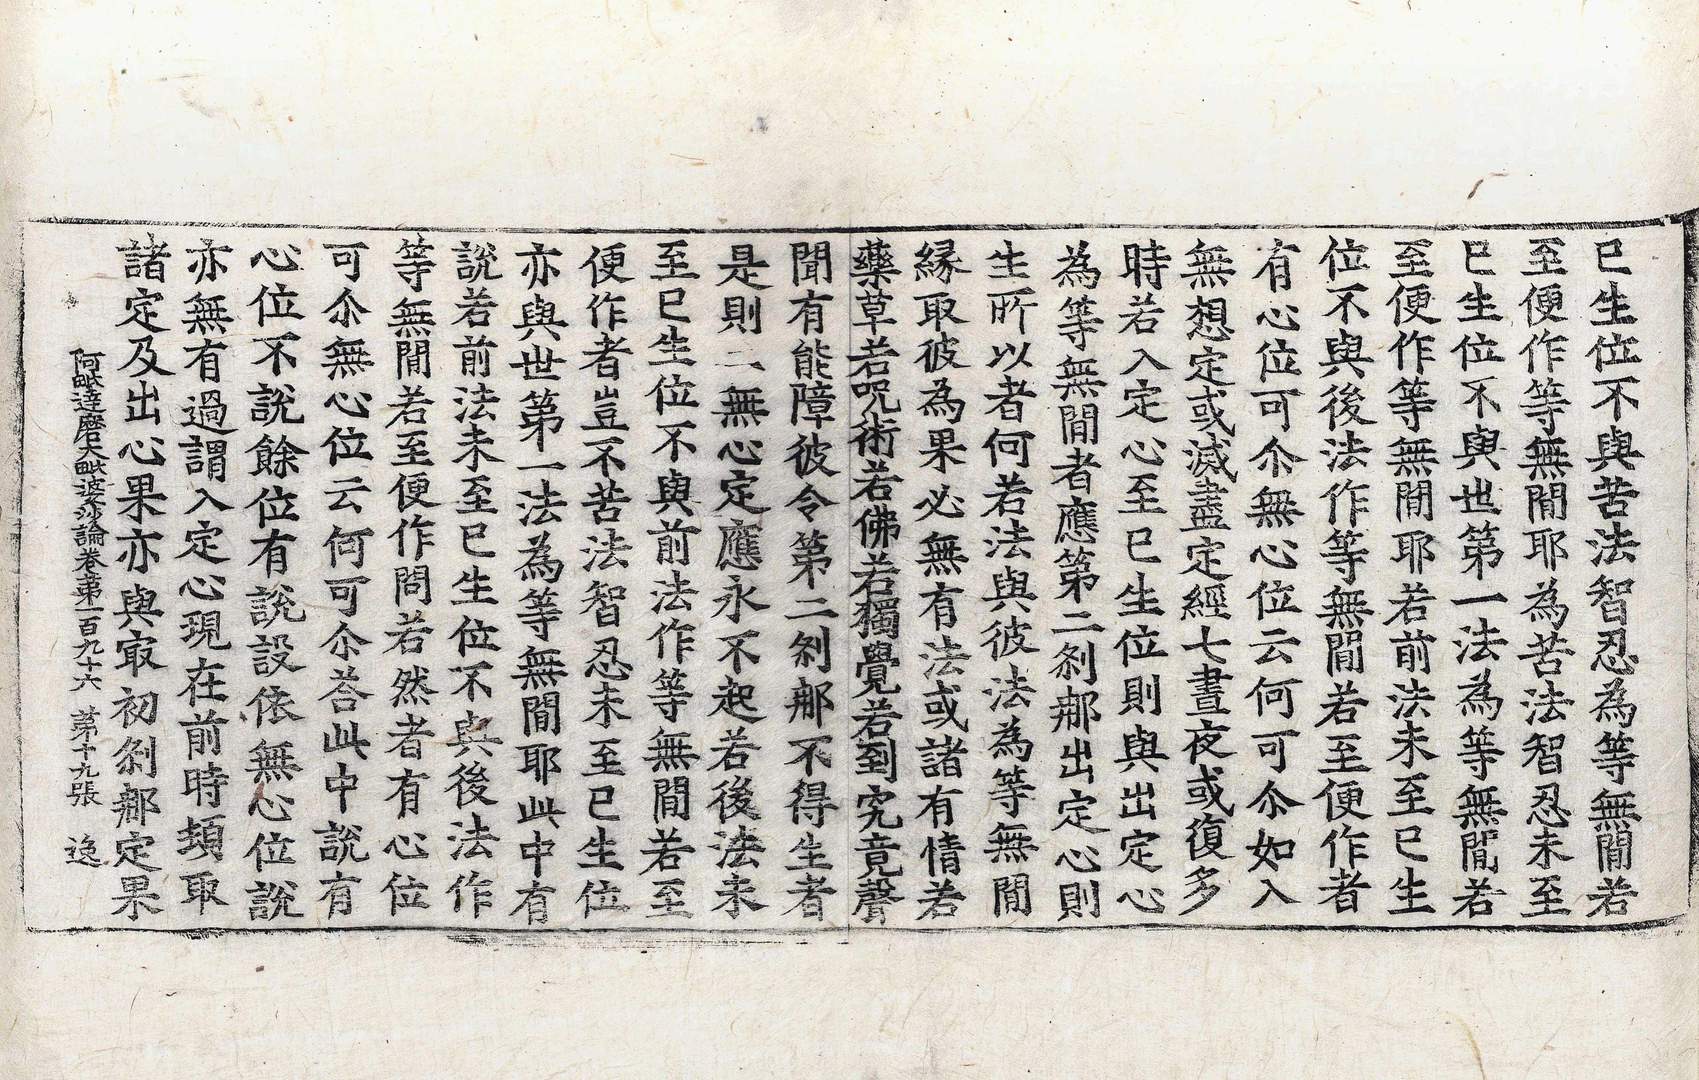 已生位不與苦法智忍為等無間若
至便作等無間耶為苦法智忍未至
已生位不與世第一法為等無間若
至便作等無間耶若前法未至已生
位不與後法作等無間若至便作者
有心位可尒無心位云何可尒如入
無想定或滅盡定經七晝夜或復多
時若入定心至已生位則與出定心
為等無間者應第二刹那出定心則
生所以者何若法與彼法為等無間
緣取彼為果必無有法或諸有情若
藥草若呪術若佛若獨覺若到究竟聲
聞有能障彼令第二刹那不得生者
是則二無心定應永不起若後法未
至已生位不與前法作等無間若至
便作者豈不苦法智忍未至已生位
亦與世第一法為等無間耶此中有
說若前法未至已生位不與後法作
等無間若至便作問若然者有心位
可尒無心位云何可尒荅此中說有
心位不說餘位有說設依無心位說
亦無有過謂入定心現在前時頓取
諸定及出心果亦與㝡初刹那定果
阿毗達磨大毗婆沙論卷第一百九十六 第十九張 逸